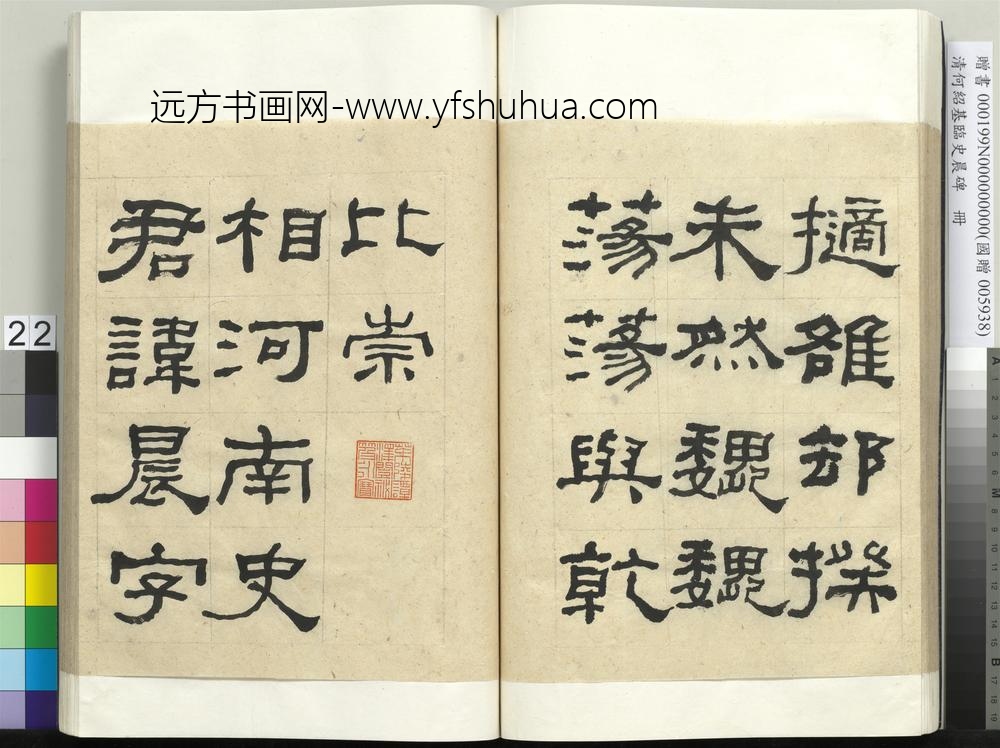 远方书画网-www.yfshuhua.com
贈書 000199N000000000(國贈 005938)
清何紹基臨史晨碑 冊
擿雒卻揆
未然魏魏
蕩蕩與乾
比崇
相河南史
君諱晨字
22
A
M
B